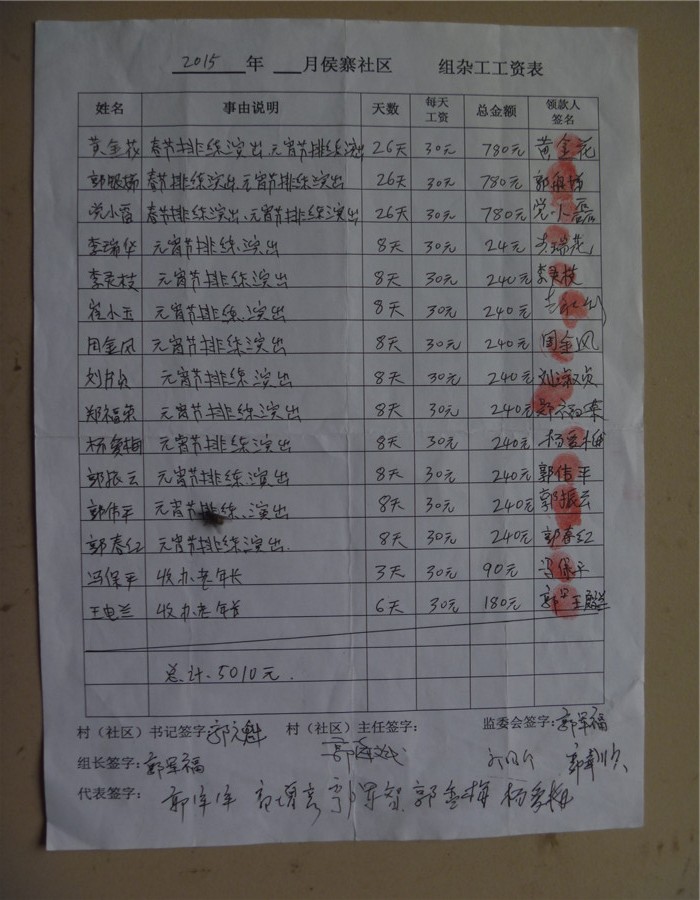 2015 年 月侯寨社区 组杂工工资表
姓名 事由说明 天数 每天工资 总金额 领款人签名
黄金花 春节排练演出元宵节排练演出 26天 30元 780元 黄金花
春节排练演出元宵节排练演出 26天 30元 780元
党小霞 春节排练演出、元宵节排练演出 26天 30元 780元 党小霞
李瑞华 元宵节排练演出 8天 30元 24元
李灵枝 元宵节排练演出 8天 30元 240元 李灵枝
崔小玉 元宵节排练演出 8天 30元 240元
周金凤 元宵节排练演出 8天 30元 240元 周金凤
元宵节排练演出 8天 30元 240元 刘淑贞
郑福荣 元宵节排练演出 8天 30元 240元 郑福荣
杨爱梅 元宵节排练演出 8天 30元 240元 杨爱梅
郭振云 元宵节排练演出 8天 30元 240元 郭伟平
郭伟平 元宵节排练演出 8天 30元 240元 郭振云
郭春红 元宵节排练演出. 8天 30元 240元 郭春红
冯保平 收办老年长 3天 30元 90元 冯保平
收办老年长 6天 30元 180元
总计.5010元.
村（社区）书记签字: 村（社区）主任签字： 监委会签字:郭军福
组长签字:郭军福
代表签字： 郭金梅 杨爱梅